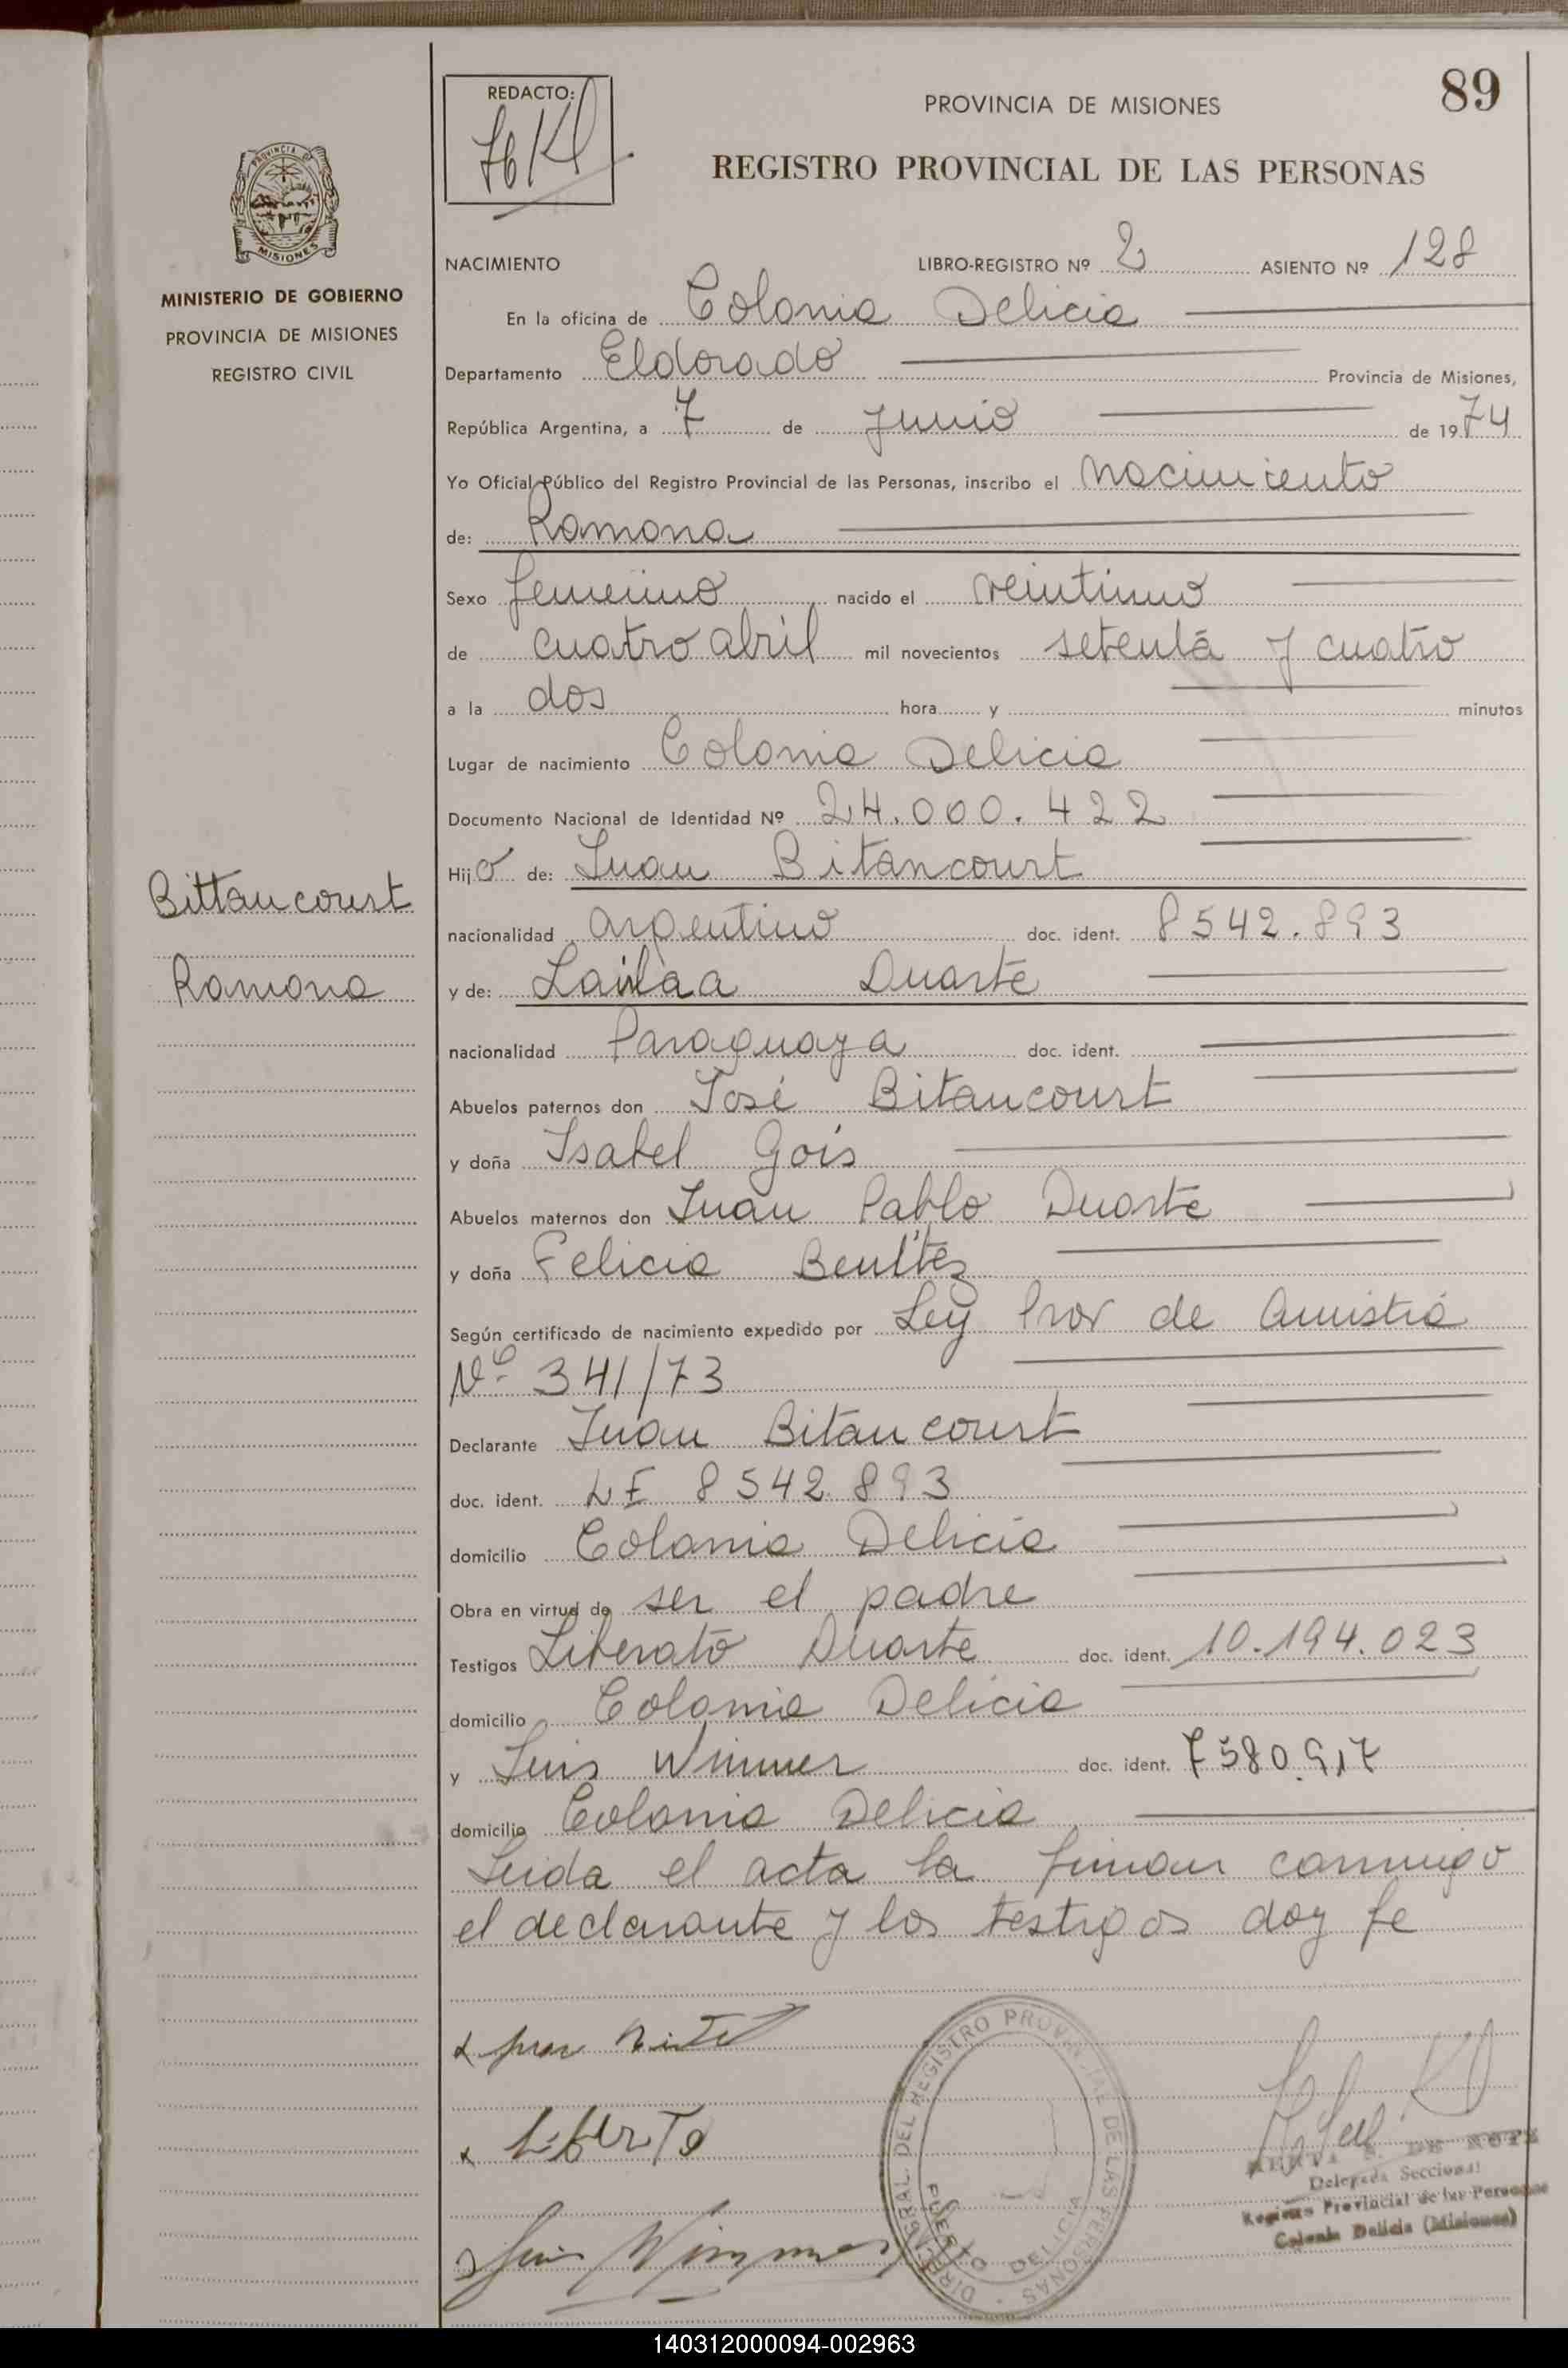 89
REDACTO:
PROVINCIA DE MISIONES
REGISTRO PROVINCIAL DE LAS PERSONAS
PROVINCIA DE
MISIONES
MINISTERIO DE GOBIERNO
PROVINCIA DE MISIONES
REGISTRO CIVIL
NACIMIENTO LIBRO-REGISTRO Nº 2 ASIENTO Nº 128
En la oficina de Colonia Delicia
Departamento Eldorado Provincia de Misiones,
República Argentina, a 7 de Junio de 1974
Yo Oficial Público del Registro Provincial de las Personas, inscribo el Nacimiento
de: Ramona
Sexo femenino nacido el veintiuno
de cuatro abril mil novecientos setenta y cuatro
a la dos hora y minutos
Lugar de nacimiento Colonia Delicia
Documento Nacional de Identidad Nº 24.000.422
Hijo de: Juan Bitancourt
Bittancourt
Ramona
nacionalidad argentino doc. ident. 8542.893
y de: Duarte
nacionalidad Paraguaya doc. ident.
Abuelos paternos don José Bitancourt
y doña Isabel Gois
Abuelos maternos don Juan Pablo Duarte
y doña Felicia Benítez
Según certificado de nacimiento expedido por Ley Prov de Amistia
Nº 341/73
Declarante Juan Bitancourt
doc. ident. LE 8542.893
domicilio Colonia Delicia
Obra en virtud de ser el padre
Testigos Liberato Duarte doc. ident. 10.194.023
domicilio Colonia Delicia
y Luis Wimmer doc. ident. 7580.917
domicilio Colonia Delicia
Leida el acta la firman conmigo
el declarante y los testigos doy fe
Luis Wimmer
DIRECCION GENERAL DEL REGISTRO PROVINCIAL DE LAS PERSONAS
PUERTO DELICIA
DE
Delegada Seccional
Registro Provincial de las Personas
Colonia Delicia (Misiones)
140312000094-002963